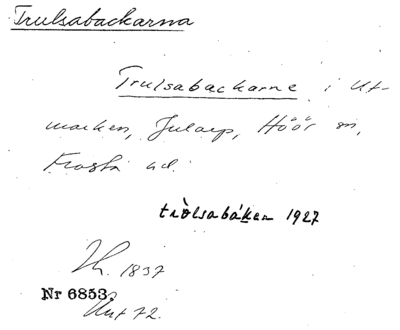 Trulsabackarna
Trulsabackarne i Ut-
marken, Jularp, Höör sn,
Frosta hd.
tròlsabákẹn 1927
1837
Nr 6853.
72.